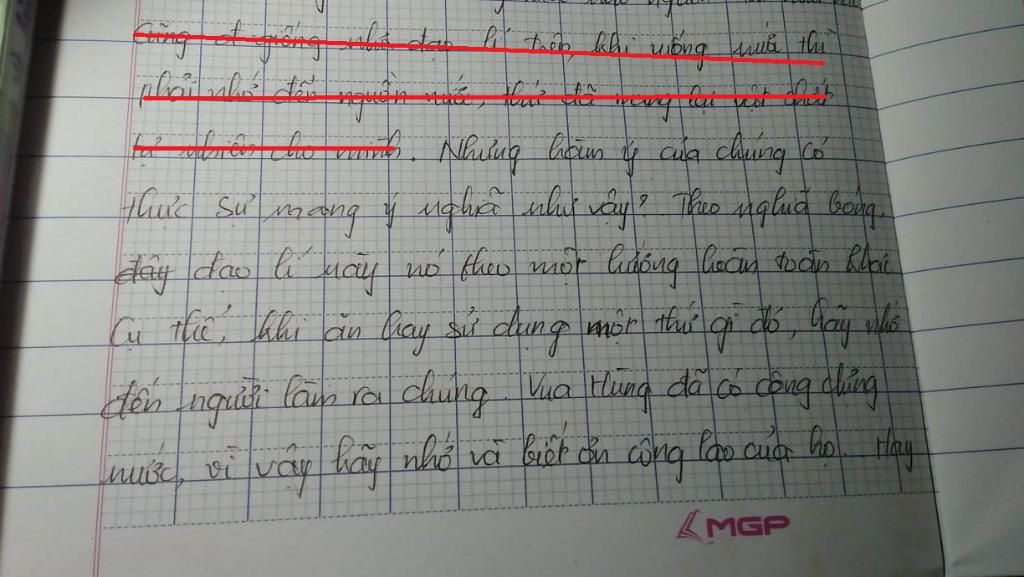 Cũng giống như đạo lí trên, khi uống nước thì
phải nhớ đến nguồn nước, thứ đã mang lại vật chất
tự nhiên cho mình. Nhưng hàm ý của chúng có
thực sự mang ý nghĩa như vậy? Theo nghĩa bóng,
đây đạo lí này nó theo một hướng hoàn toàn khác
Cụ thể, khi ăn hay sử dụng một thứ gì đó, hãy nhớ
đến người làm ra chúng. Vua Hùng đã có công dựng
nước, vì vậy hãy nhớ và biết ơn công lao của họ. Hay
MGP